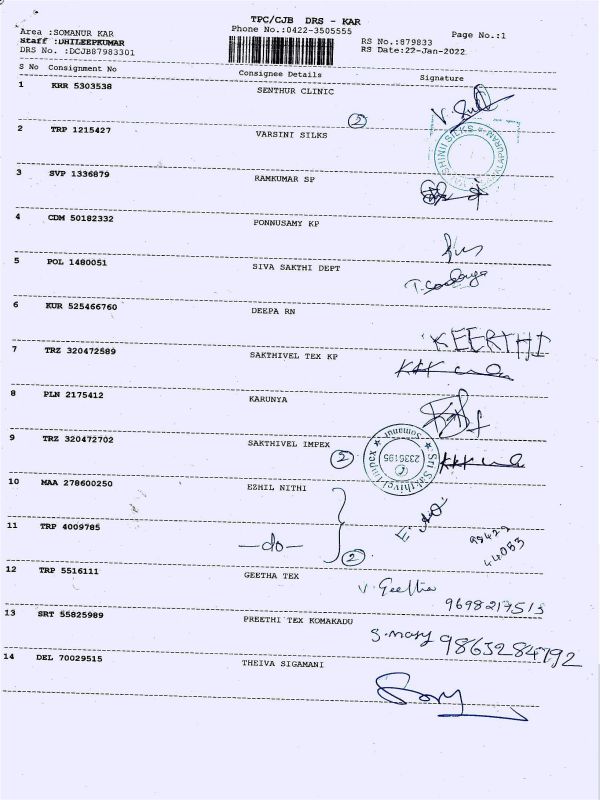 TPC/CJB DRS - KAR
Area :SOMANUR KAR
Phone No.:0422-3505555
Page No.:1
Staff :DHILEEPKUMAR
RS No.:879833
DRS No. :DCJB87983301
RS Date:22-Jan-2022
S No Consignment No Consignee Details Signature
1 KRR 5303538 SENTHUR CLINIC
2
2 TRP 1215427 VARSINI SILKS
3 SVP 1336879 RAMKUMAR SP
4 CDM 50182332 PONNUSAMY KP
5 POL 1480051 SIVA SAKTHI DEPT
6 KUR 525466760 DEEPA RN
KEERTHI
7 TRZ 320472589 SAKTHIVEL TEX KP
8 PLN 2175412 KARUNYA
9 TRZ 320472702 SAKTHIVEL IMPEX
2
Sri Sakthivel Impex ★ Somanur ★
2336195
10 MAA 278600250 EZHIL NITHI
11 TRP 4009785 —do—
2
98429
44053
12 TRP 5516111 GEETHA TEX
V. Geetha
9698217513
13 SRT 55825989 PREETHI TEX KOMAKADU
S. mary 9865284792
14 DEL 70029515 THEIVA SIGAMANI